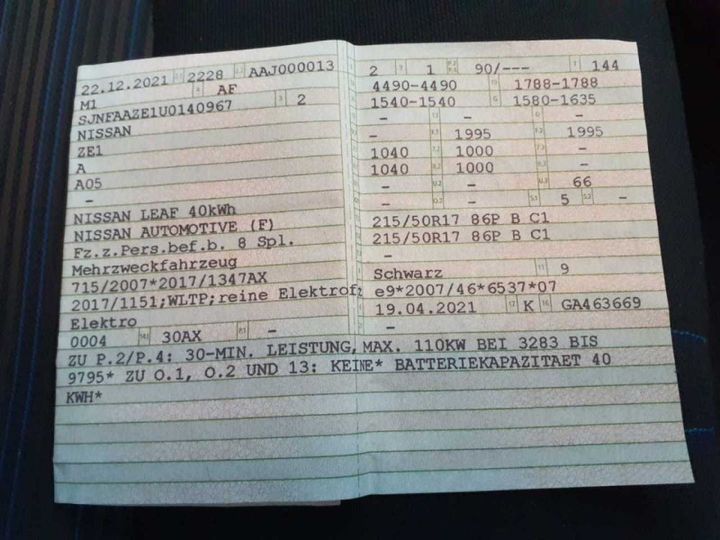 22.12.2021 2228 AAJ000013
M1 AF
SJNFAAZE1U0140967 2
NISSAN
ZE1
A
A05
-
NISSAN LEAF 40kWh
NISSAN AUTOMOTIVE (F)
Fz.z.Pers.bef.b. 8 Spl.
Mehrzweckfahrzeug
715/2007*2017/1347AX
2017/1151;WLTP;reine Elektrof
Elektro
0004 30AX -
2 1 90/--- 144
4490-4490 1788-1788
1540-1540 1580-1635
- -
- 1995 1995
1040 1000 -
1040 1000 -
- - 66
- - 5 -
215/50R17 86P B C1
215/50R17 86P B C1
-
Schwarz 9
e9*2007/46*6537*07
19.04.2021 K GA463669
-
ZU P.2/P.4: 30-MIN. LEISTUNG, MAX. 110KW BEI 3283 BIS
9795* ZU O.1, O.2 UND 13: KEINE* BATTERIEKAPAZITAET 40
KWH*